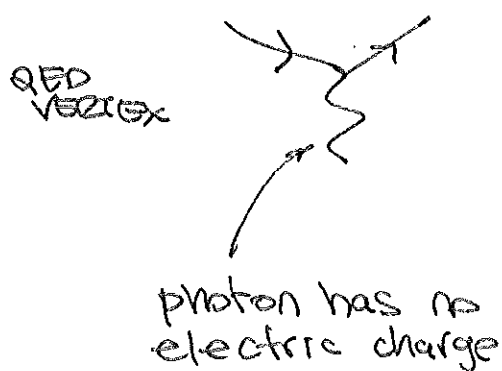 QED
VERTEX
photon has no
electric charge